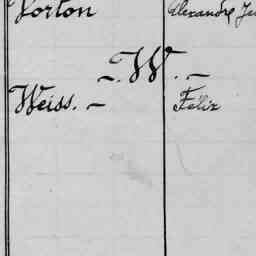 Vorton Alexandre
-. W. -
Weiss. - Félix